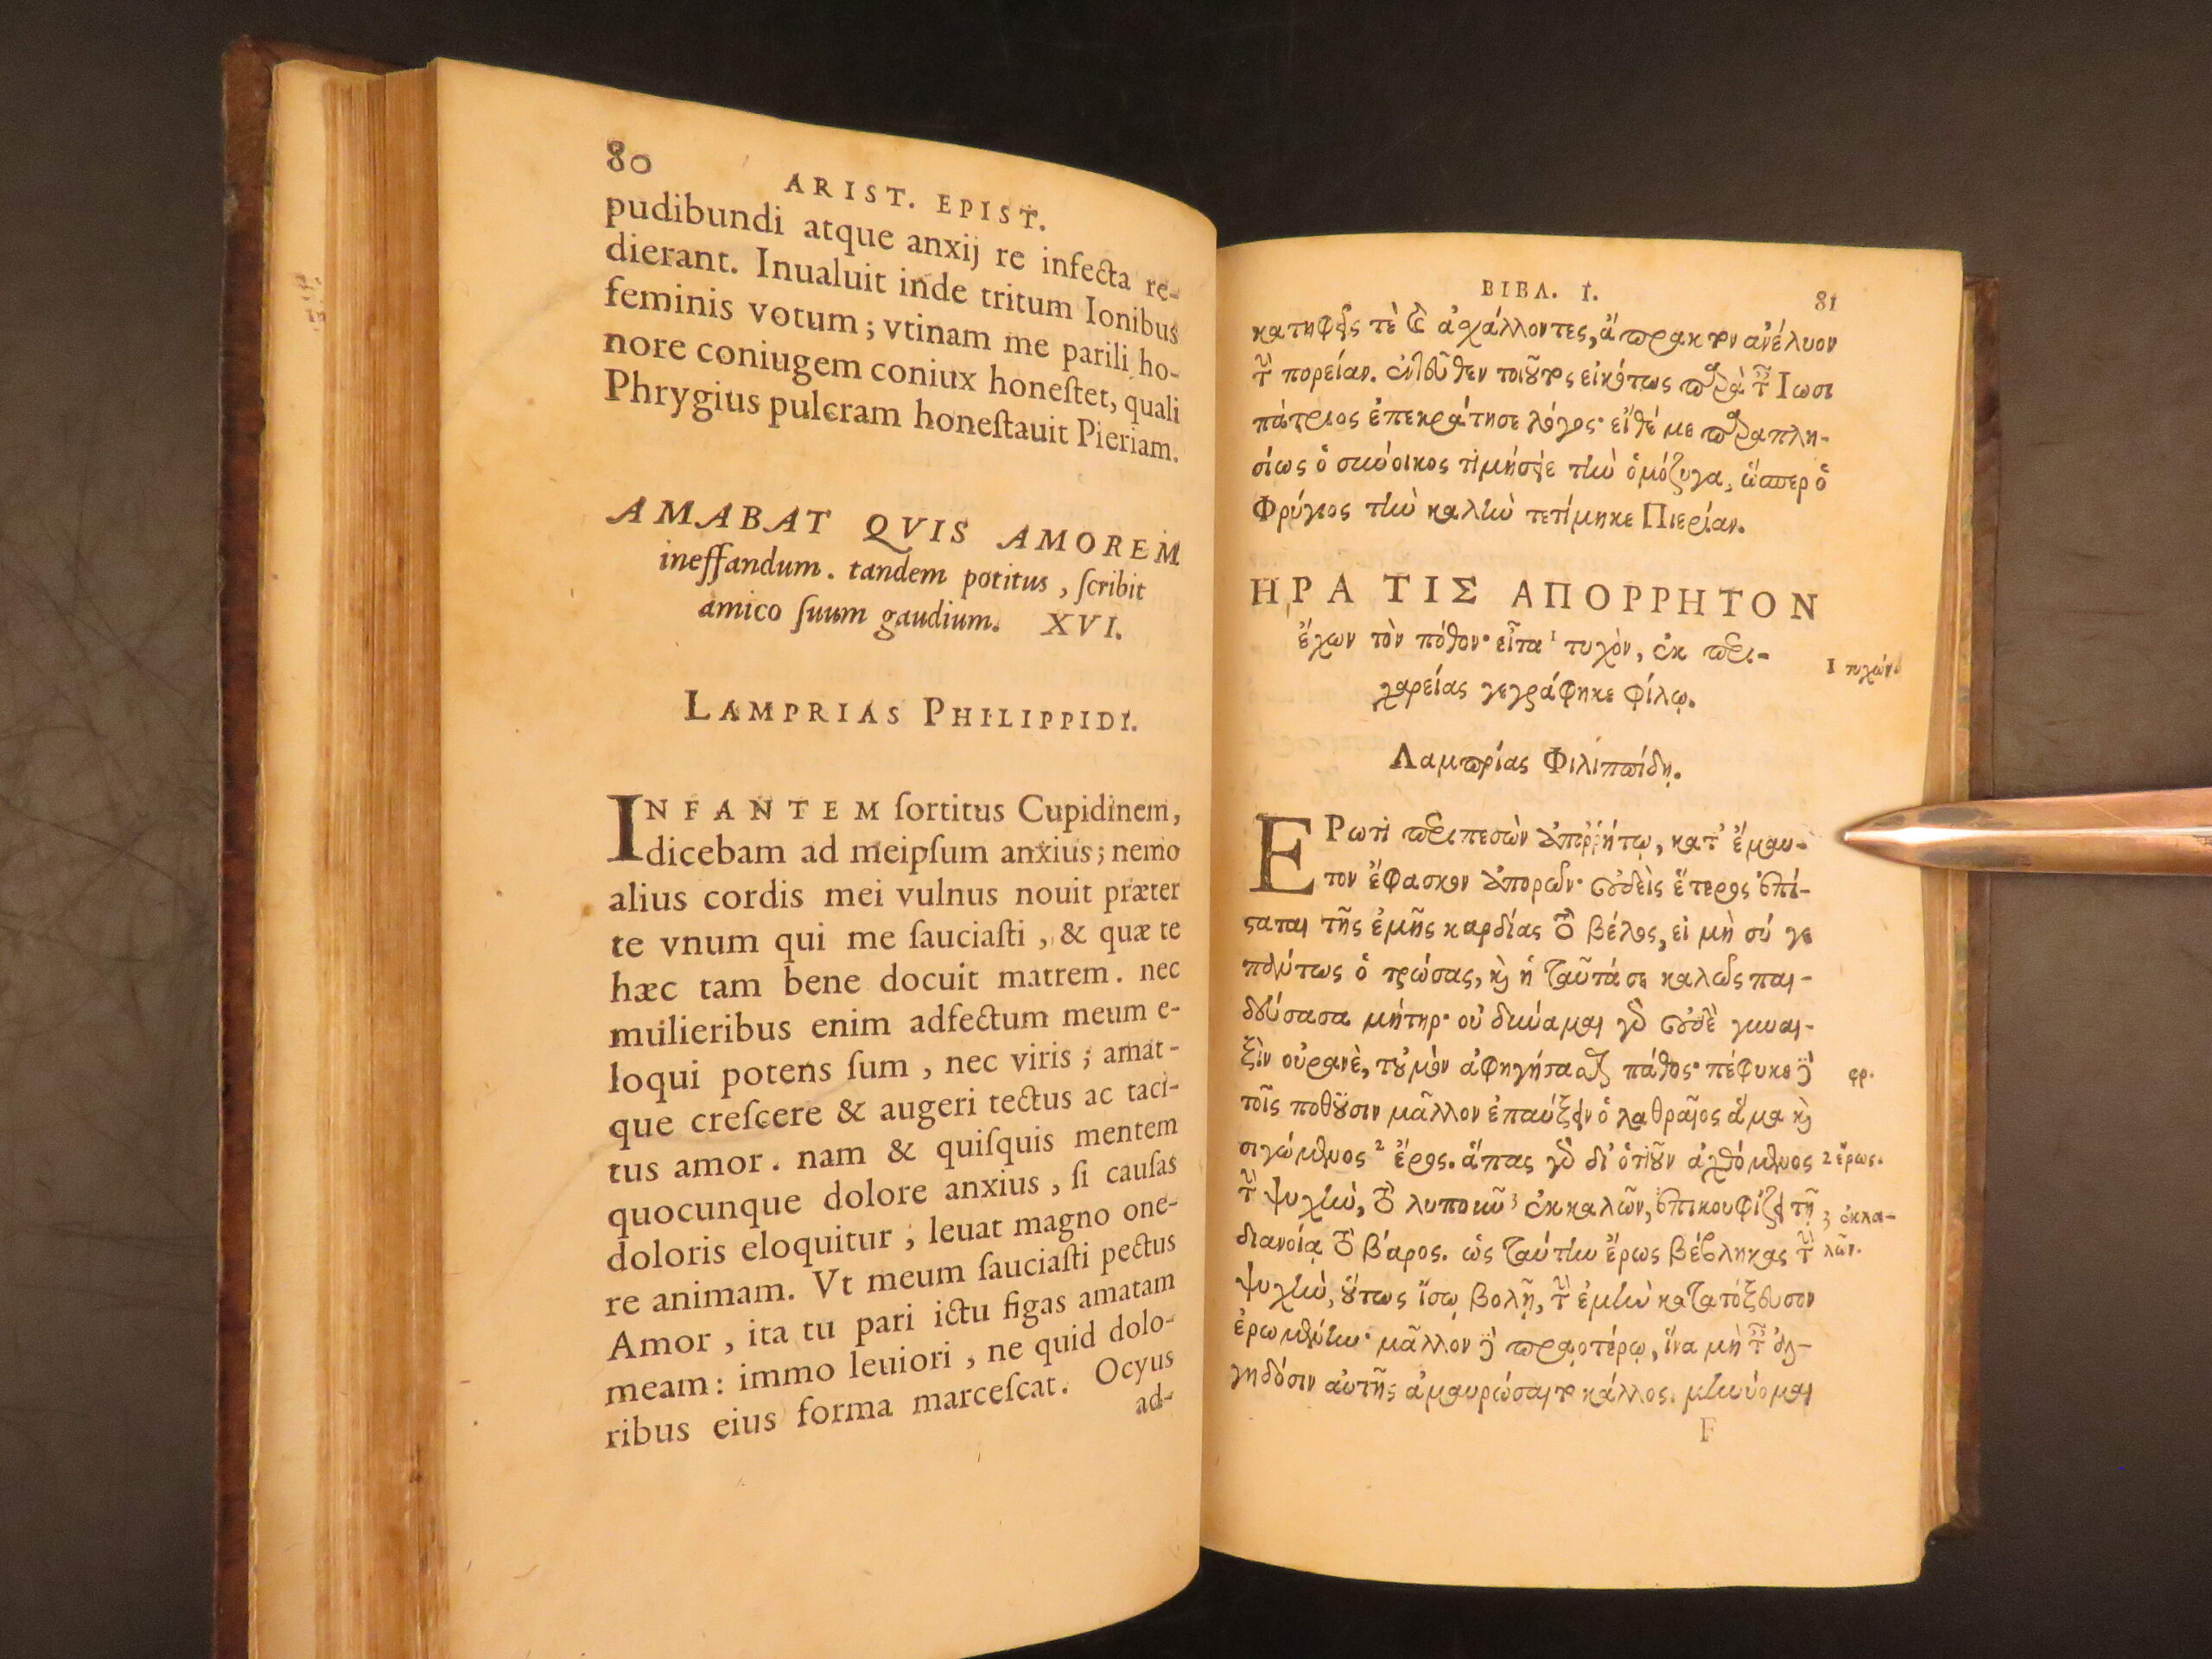 80
ARIST. EPIST.
pudibundi atque anxij re infecta re-
dierant. Inualuit inde tritum Ionibus
feminis votum; vtinam me parili ho-
nore coniugem coniux honeſtet, quali
Phrygius pulcram honeſtauit Pieriam.
AMABAT QVIS AMOREM
ineffandum. tandem potitus, ſcribit
amico ſuum gaudium. XVI.
LAMPRIAS PHILIPPIDI.
INFANTEM ſortitus Cupidinem,
dicebam ad meipſum anxius; nemo
alius cordis mei vulnus nouit præter
te vnum qui me ſauciaſti, & quæ te
hæc tam bene docuit matrem. nec
mulieribus enim adfectum meum e-
loqui potens ſum, nec viris; amat-
que creſcere & augeri tectus ac taci-
tus amor. nam & quiſquis mentem
quocunque dolore anxius, ſi cauſas
doloris eloquitur; leuat magno one-
re animam. Vt meum ſauciaſti pectus
Amor, ita tu pari ictu figas amatam
meam: immo leuiori, ne quid dolo-
ribus eius forma marceſcat. Ocyus
ad-
ΒΙΒΛ. Ι.
81
κατηφεῖς τὲ καὶ ἀσχάλλοντες, ἄπρακτον ἀνέλυον
τὴν πορείαν. ἐντεῦθεν τοιοῦτος εἰκότως παρὰ τῶν Ιωσι
πάτριος ἐπεκράτησε λόγος· εἴθέ με παραπλη-
σίως ὁ σύνοικος τιμήσειε τὴν ὁμόζυγα, ὥσπερ ὁ
Φρύγιος τὴν καλὴν τετίμηκε Πιερίαν.
ΗΡΑ ΤΙΣ ΑΠΟΡΡΗΤΟΝ
ἔχων τὸν πόθον· εἶτα 1 τυχὸν, ἐκ περι-
χαρείας γεγράφηκε φίλῳ.
1 τυχών.
Λαμπρίας Φιλιππίδῃ.
ΕΡωτι περιπεσὼν ἀπορρήτῳ, κατ' ἐμαυ-
τον ἔφασκον ἀπορῶν· οὐδεὶς ἕτερος ἐπί-
σταται τῆς ἐμῆς καρδίας τὸ βέλος, εἰ μὴ σύ γε
πάντως ὁ τρώσας, καὶ ἡ ταῦτά σε καλῶς παι-
δεύσασα μήτηρ· οὐ δύναμαι γὰρ οὐδὲ γυναι-
ξὶν οὐρανὲ, τοὐμὸν ἀφηγήσασθαι πάθος· πέφυκε δὲ
φρ.
τοῖς ποθοῦσιν μᾶλλον ἐπαύξειν ὁ λαθραῖος ἅμα καὶ
σιγώμενος 2 ἔρος. ἅπας γὰρ δι' ὁτιοῦν ἀχθόμενος
2 ἔρως.
τὴν ψυχὴν, τὸ λυποῦν 3 ἐκκαλῶν, ἐπικουφίζει τῇ
3 ἐκλα-
διανοίᾳ τὸ βάρος. ὡς ταύτην ἔρως βέβληκας τὴν
λῶν.
ψυχὴν, οὕτως ἴσῳ βολῇ, τὴν ἐμὴν κατατόξευσον
ἐρωμένην· μᾶλλον δὲ πραοτέρῳ, ἵνα μὴ τὴν ἀλ-
γηδόσιν αὐτῆς ἀμαυρώσαιτο κάλλος. μηνύομαι
F